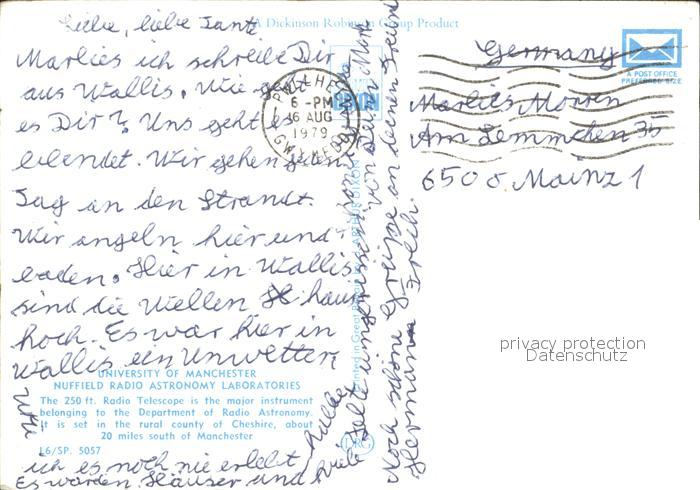 Liebe, liebe Tante
A Dickinson Robinson Group Product
Marlies ich schreibe Dir
aus Wallis. Wie geht
es Dir? Uns geht es
elendet. Wir gehen jeden
Tag an den Strandt.
Wir angeln hier und
baden. Hier in Wallis
sind die Wellen haus
hoch. Es war hier in
Wallis ein Unwetter,
UNIVERSITY OF MANCHESTER
NUFFIELD RADIO ASTRONOMY LABORATORIES
The 250 ft. Radio Telescope is the major instrument
belonging to the Department of Radio Astronomy.
It is set in the rural county of Cheshire, about
20 miles south of Manchester
L6/SP. 5057
ich es noch nie erlebt
Es worden Häuser und viele
Zelte umgerissen
von Deinem
Noch schöne Grüße an deinen Freund
Hermann Erich.
Printed in Great Britain
DRG
PWLLHELI
6 -PM
16 AUG
1979
GWYNEDD
A POST OFFICE
PREFERRED SIZE
Germany
Marlies Moren
Am Lemmchen 35
6500 Mainz 1
privacy protection
Datenschutz